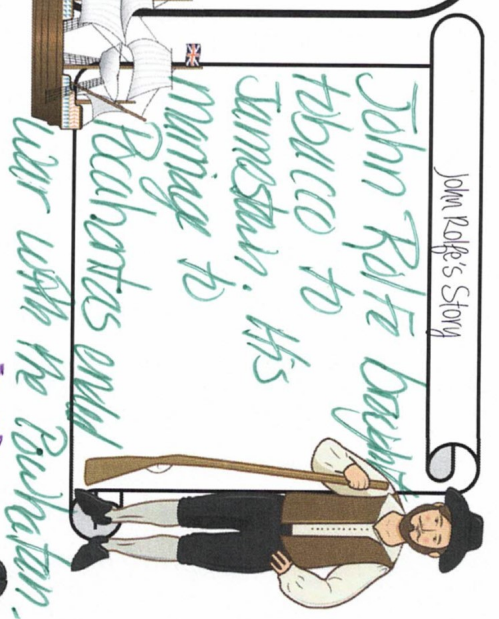 John Rolfe's Story
John Rolfe bought
tobacco to
Jamestown. His
Marriage to
Pocahontas ended
war with the Powhatan.